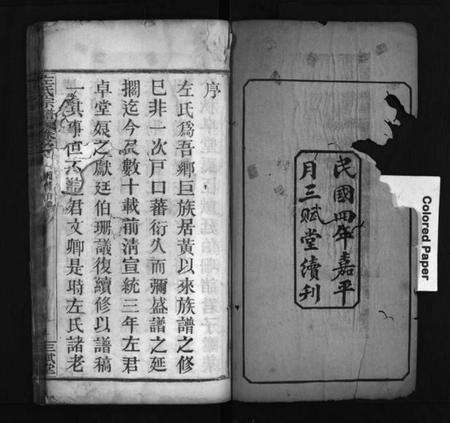 民國四年嘉平
月三賦堂續刋
Colored Paper
序
左氏爲吾鄉巨族居黃以來族譜之修
已非一次戸口蕃衍久而彌盛譜之延
擱迄今又數十載前淸宣統三年左君
卓堂煥之獻廷伯珊議復續修以譜稿
一其事世 君文卿是時左氏諸老
左氏宗譜
三賦堂